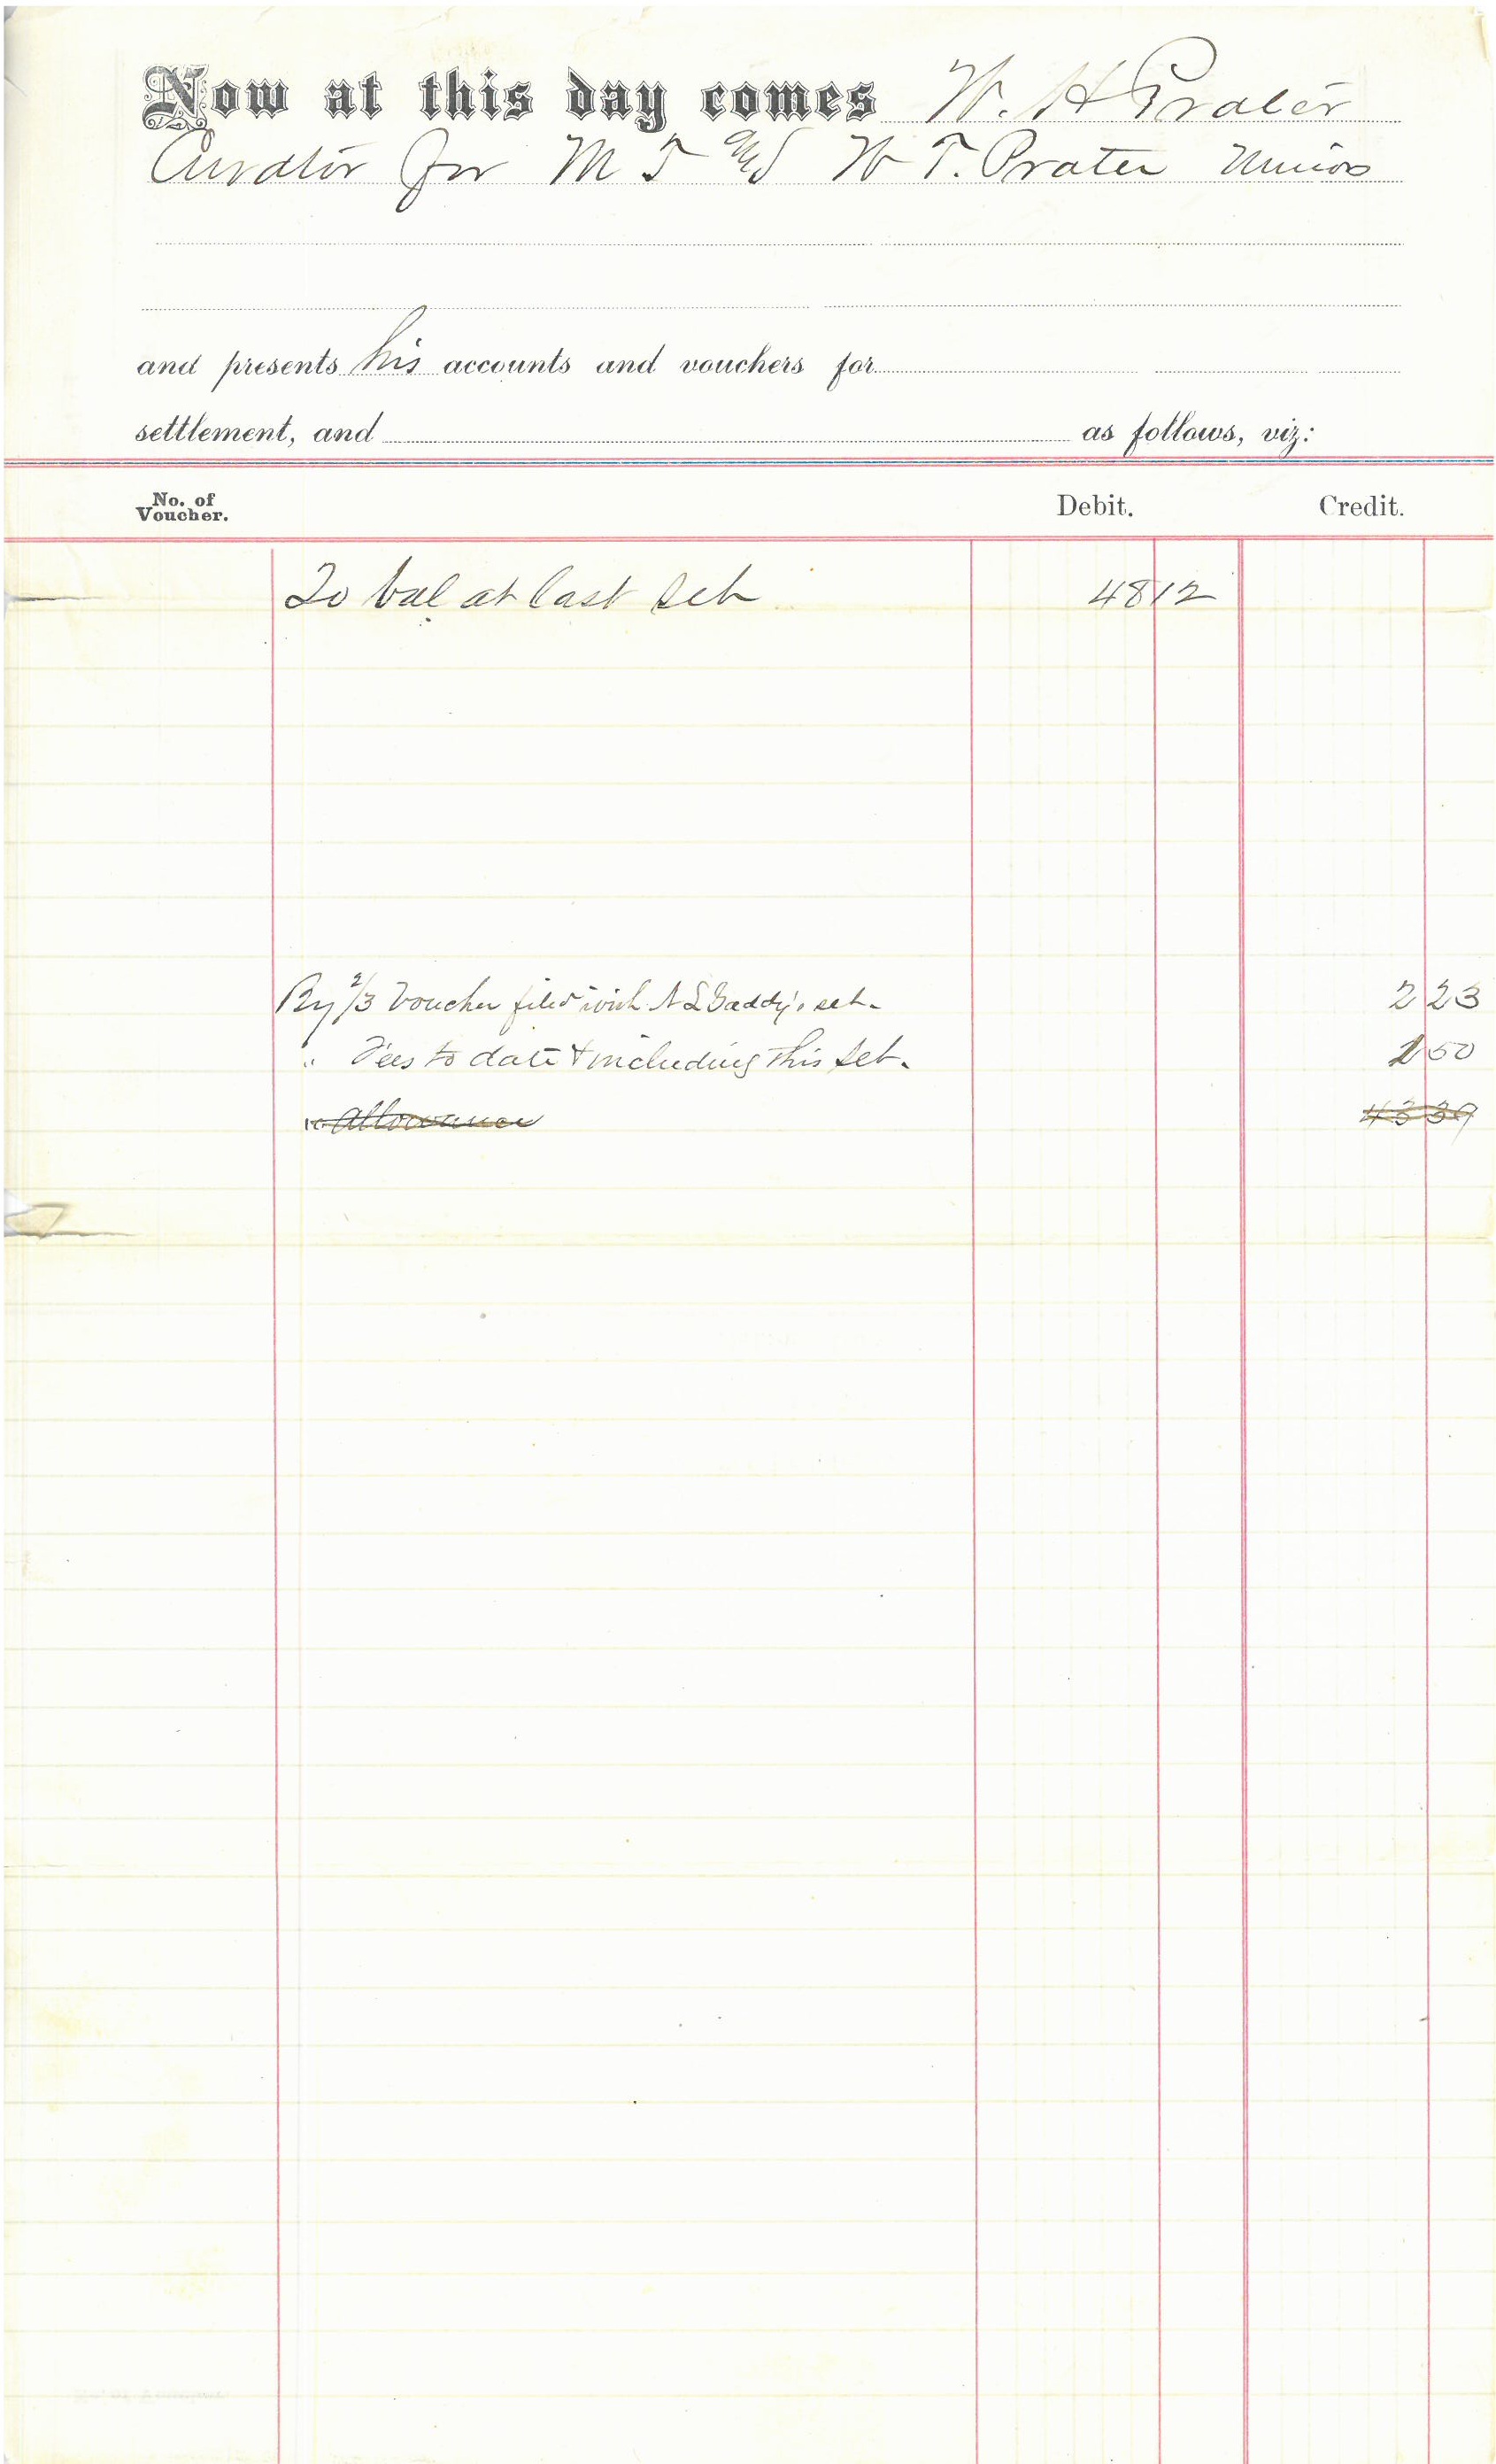 Now at this day comes W. H Prater
Curator for M T and W T. Prater Minors
and presents his accounts and vouchers for
settlement, and as follows, viz:
No. of Voucher. Debit. Credit.
To bal at last Set 48 12
By 2/3 Voucher filed with N L Gaddy's set. 2 23
" Fees to date & including this Set. 50
" Allowance 43 39